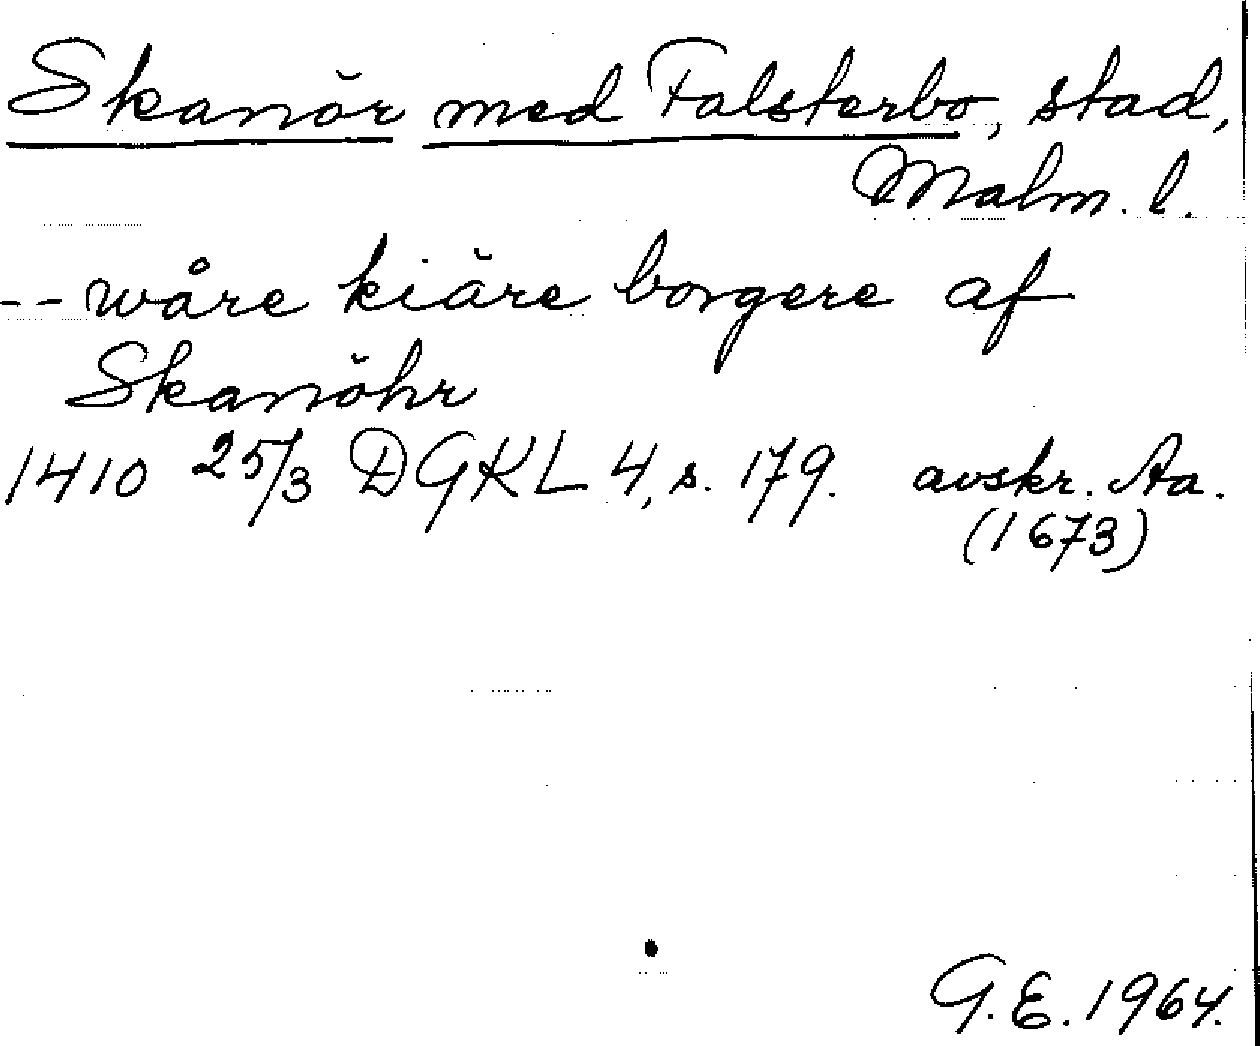 Skanör med Falsterbo, stad,
Malm. l.
-- wåre kiäre borgere af
Skanöhr
1410 25/3 DGKL 4, s. 179. avskr. Aa.
(1673)
G.E. 1964.